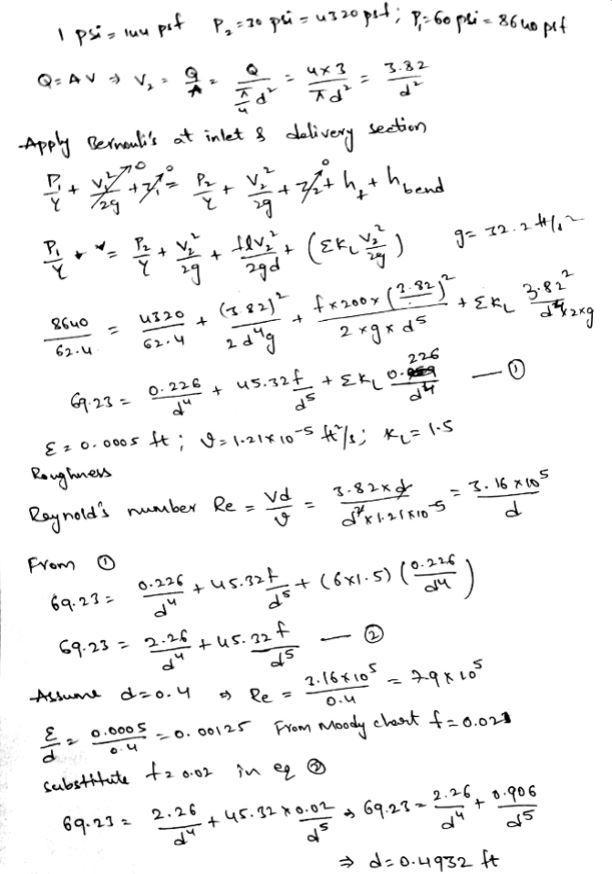 1 psi = 144 psf P₂ = 30 psi = 4320 psf ; P₁ = 60 psi = 8640 psf
Q = AV ⇒ V₂ = Q/A = Q/(π/4 d²) = 4×3/πd² = 3.82/d²
Apply Bernouli's at inlet & delivery section
P₁/γ + V₁²/2g↗0 + z₁↗0 = P₂/γ + V₂²/2g + z₂↗0 + h_f + h_bend
P₁/γ + = P₂/γ + V₂²/2g + flV₂²/2gd + (ΣK_L V₂²/2g) g = 32.2 ft/s²
8640/62.4 = 4320/62.4 + (3.82)²/2d⁴g + f×200×(3.82)²/2×g×d⁵ + ΣK_L 3.82²/d⁴×2×g
69.23 = 0.226/d⁴ + 45.32f/d⁵ + ΣK_L 0.226/d⁴ — ①
ε = 0.0005 ft ; ϑ = 1.21×10⁻⁵ ft²/s ; K_L = 1.5
Roughness
Reynold's number Re = Vd/ϑ = 3.82×d/d²×1.21×10⁻⁵ = 3.16×10⁵/d
From ①
69.23 = 0.226/d⁴ + 45.32f/d⁵ + (6×1.5) (0.226/d⁴)
69.23 = 2.26/d⁴ + 45.32 f/d⁵ — ②
Assume d=0.4 ⇒ Re = 3.16×10⁵/0.4 = 7.9×10⁵
ε/d = 0.0005/0.4 = 0.00125 From Moody chart f = 0.021
substitute f = 0.02 in eq ②
69.23 = 2.26/d⁴ + 45.32×0.02/d⁵ ⇒ 69.23 = 2.26/d⁴ + 0.906/d⁵
⇒ d = 0.4932 ft